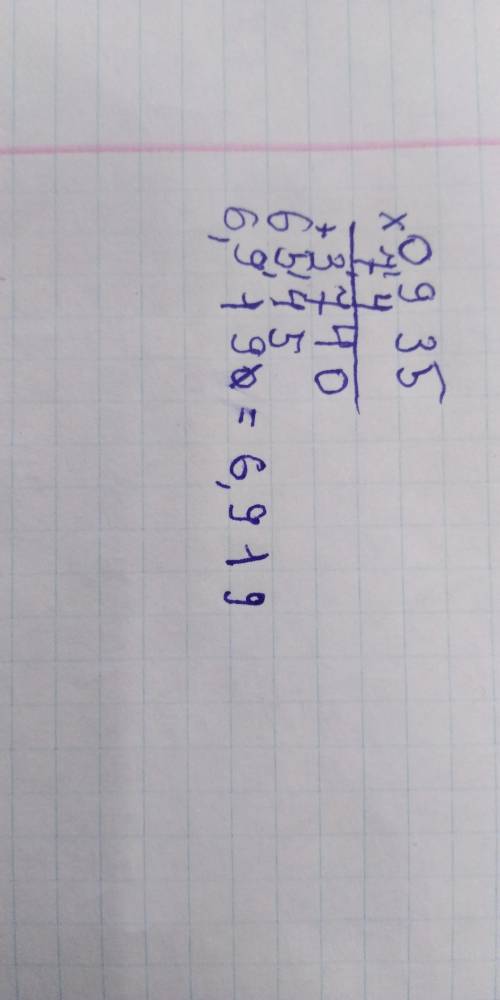 0,935
× 7,4
+ 3,740
65,45
6,9190 = 6,919